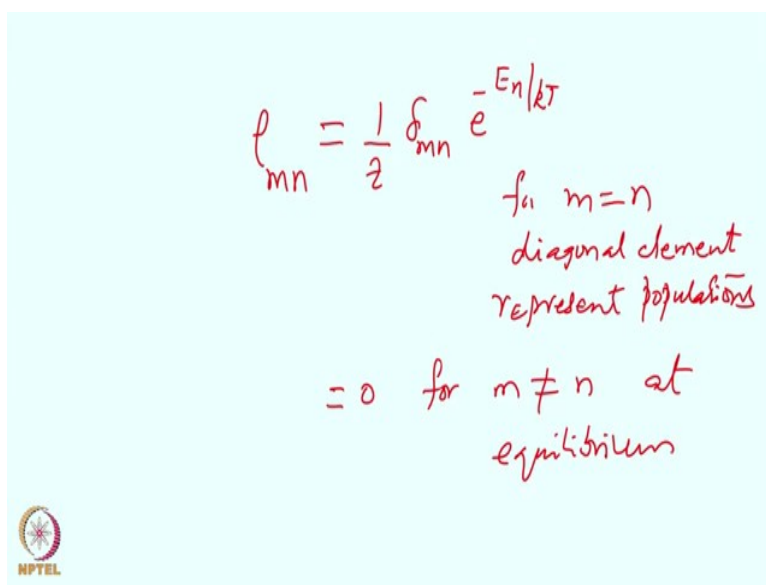 ρ_mn = 1/z δ_mn e^-En/kT
for m=n
diagonal element
represent populations
=0 for m≠n at
equilibrium
NPTEL